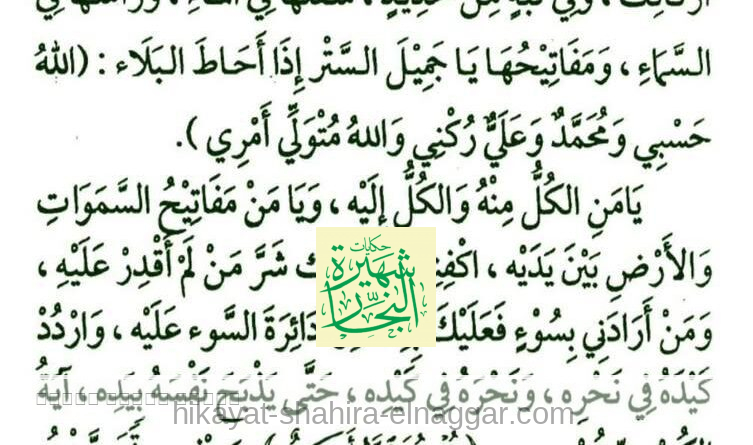 السَّمَاءِ ، وَمَفَاتِيْحُهَا يَا جَمِيْلَ السَّتْر إِذَا أَحَاطَ البَلَاء : (اللهُ
حَسْبِي وَمُحَمَّدٌ وَعَلَيٌّ رُكْنِي وَاللهُ مُتْوَلِّي أَمْرِي ).
يَامَنِ الكُلُّ مِنْهُ وَالكُلُّ إِلَيْه ، وَيَا مَنْ مَفَاتِيْحُ السَّمَوَاتِ
حكايات
شهيرة
النجار
وَالأَرْضِ بَيْنَ يَدَيْه ، شَرَّ مَنْ لَمْ أَقْدِرْ عَلَيْهِ ،
وَمَنْ أَرَادَنِي بِسُوْءٍ فَعَلَيْكَ دَائِرَةَ السَّوء عَلَيْه ، وَارْدُدْ
كَيْدَهُ فِي نَحْرِهِ ، وَنَحْرَهُ فِي كَيْدِهِ ، حَتَّى يَذْبَحَ نَفْسَهُ بِيَدِه ، آيَةُ
hikayat-shahira-elnaggar.com